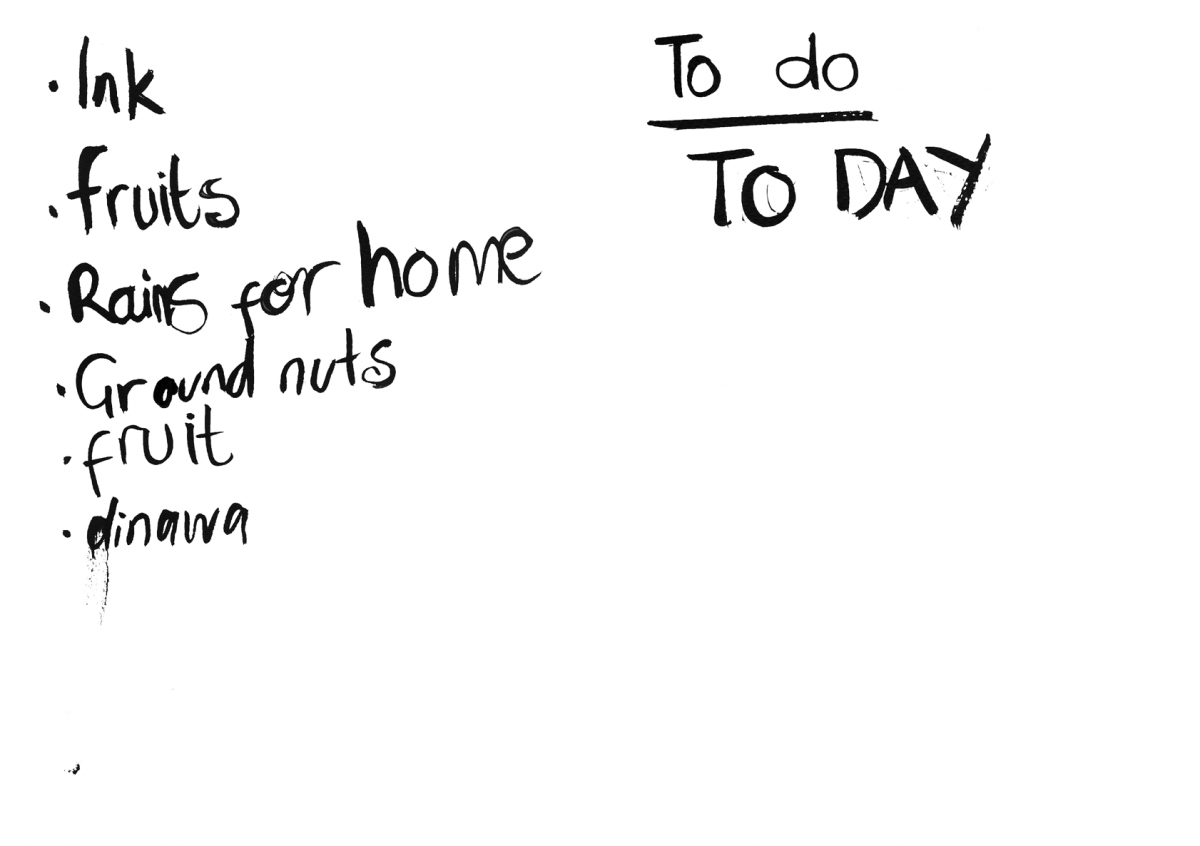 Ink
fruits
Rains for home
Ground nuts
fruit
dinawa
To do
TO DAY